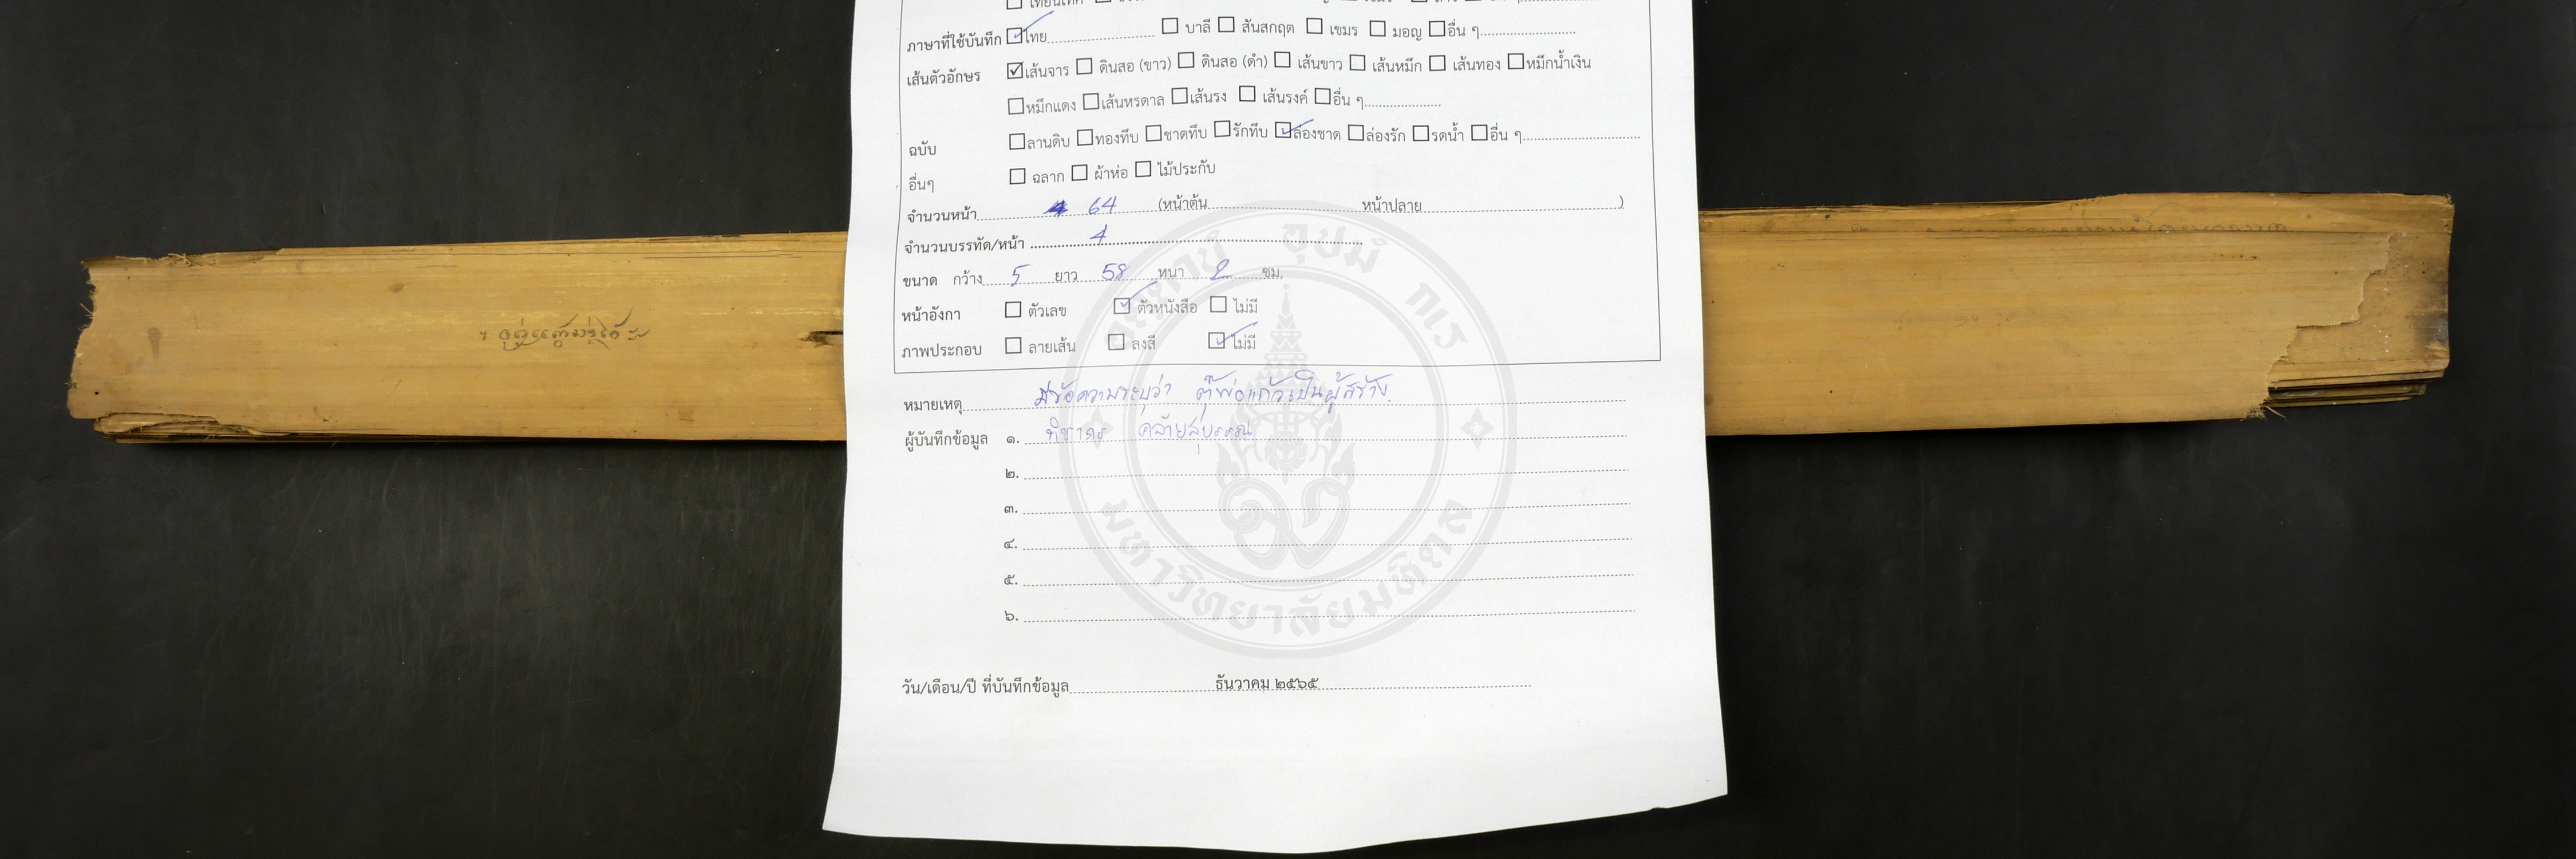 ภาษาที่ใช้บันทึก ไทย บาลี สันสกฤต เขมร มอญ อื่น ๆ
เส้นตัวอักษร เส้นจาร ดินสอ (ขาว) ดินสอ (ดำ) เส้นขาว เส้นหมึก เส้นทอง หมึกน้ำเงิน
หมึกแดง เส้นหรดาล เส้นรง เส้นรงค์ อื่น ๆ
ฉบับ ลานดิบ ทองทึบ ชาดทึบ รักทึบ ล่องชาด ล่องรัก รดน้ำ อื่น ๆ
อื่นๆ ฉลาก ผ้าห่อ ไม้ประกับ
จำนวนหน้า 64 (หน้าต้น หน้าปลาย )
จำนวนบรรทัด/หน้า 4
ขนาด กว้าง 5 ยาว 58 หนา 2 ซม.
หน้าอังกา ตัวเลข ตัวหนังสือ ไม่มี
ภาพประกอบ ลายเส้น ลงสี ไม่มี
หมายเหตุ มีข้อความระบุว่า ตุ๊พ่อแก้วเป็นผู้สร้าง
ผู้บันทึกข้อมูล ๑. คล้ายสุบรรณ
๒.
๓.
๔.
๕.
๖.
วัน/เดือน/ปี ที่บันทึกข้อมูล ธันวาคม ๒๕๖๕
อตฺตานํ อุปมํ กเร
มหาวิทยาลัยมหิดล